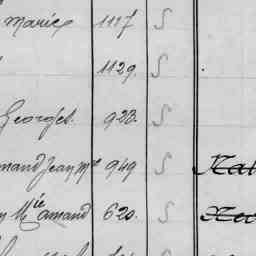 Marie 1117 S
1129. S
Georges. 923. S
mand Jean Mie 949 S
Mie Amand 620. S